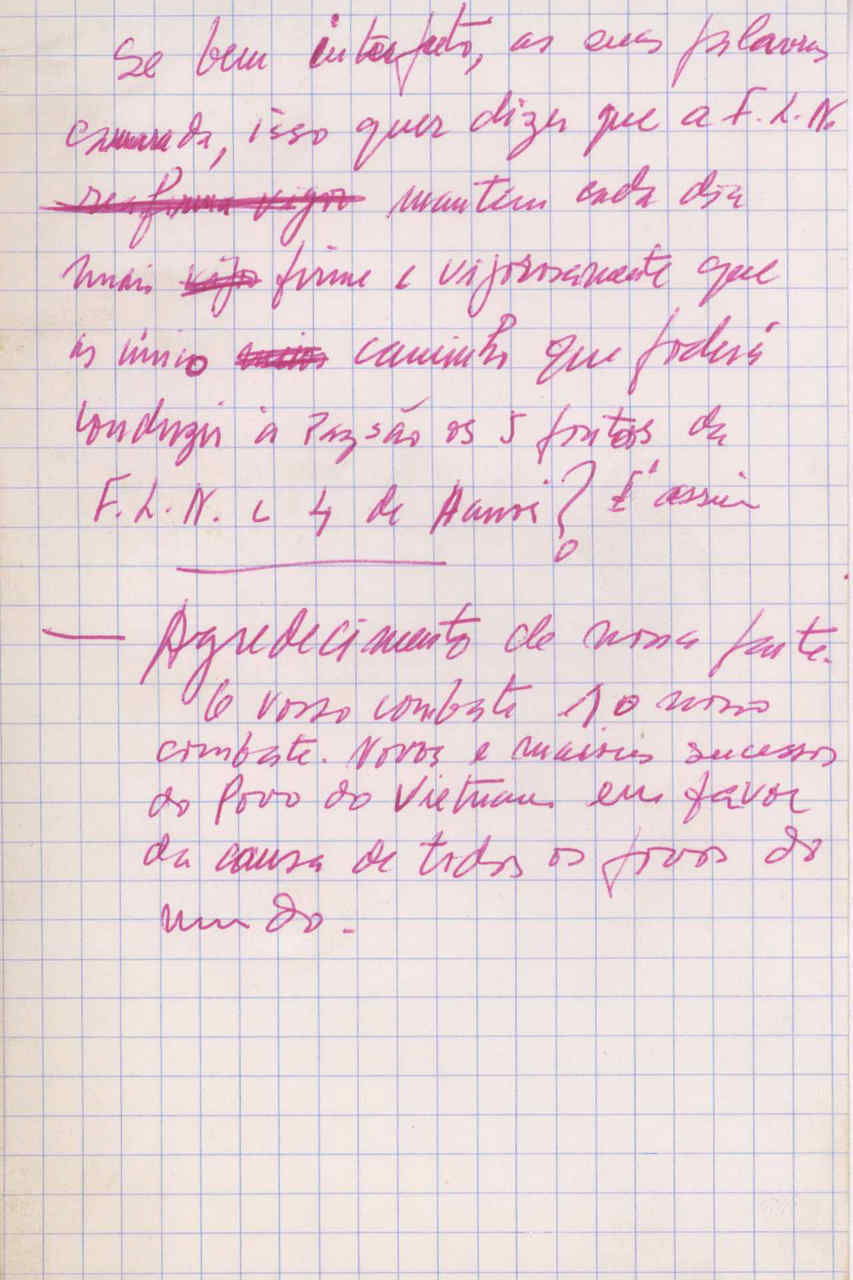 Se bem interpreto, as suas palavras
camarada, isso quer dizer que a F.L.N.
reafirma vigor mantém cada dia
mais vigo firme e vigorosamente que
os único caminho que poderá
conduzir à Paz são os 5 pontos da
F.L.N. e 4 de Hanoi? É assim
— Agredecimento de nossa parte.
O vosso combate é o nosso
combate. Novos e maiores sucessos
do Povo do Vietnam em favor
da causa de todos os povos do
mundo.